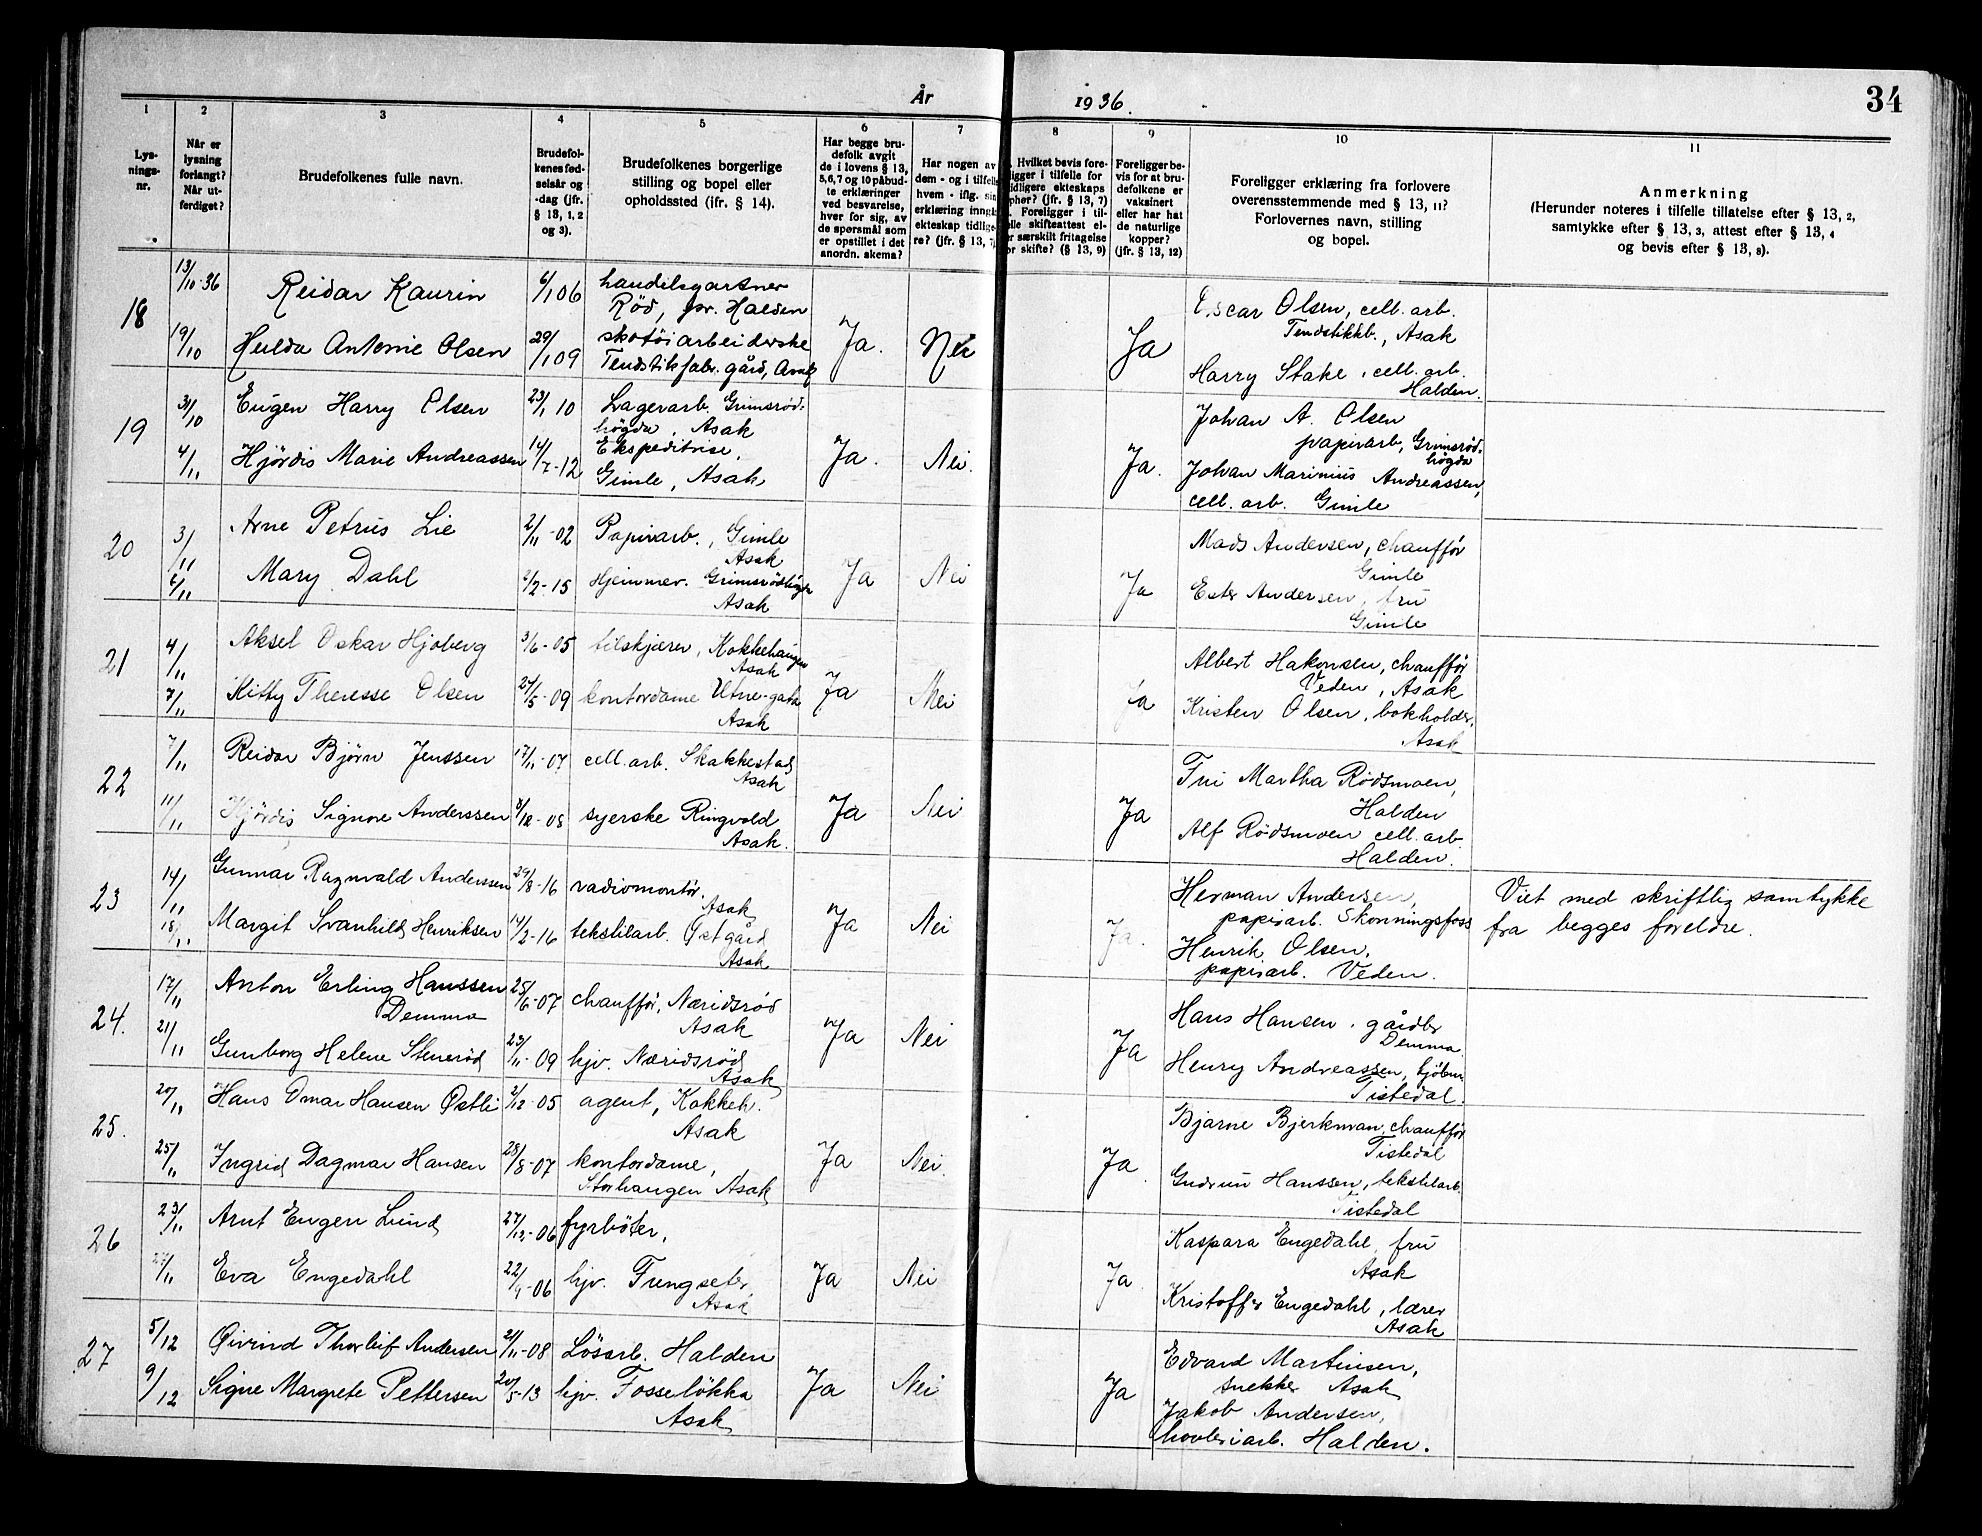 År 1936.
34
1
2
3
4
5
6
7
8
9
10
11
Lys-
nings-
nr.
Når er
lysning
forlangt?
Når ut-
ferdiget?
Brudefolkenes fulle navn.
Brudefol-
kenes fød-
selsår og
-dag (jfr.
§ 13, 1, 2
og 3).
Brudefolkenes borgerlige
stilling og bopel eller
opholdssted (jfr. § 14).
Har begge bru-
defolk avgit
de i lovens § 13,
5,6,7 og 10 påbud-
te erklæringer
ved besvarelse,
hver for sig, av
de spørsmål som
er opstillet i det
anordn. skema?
Har nogen av
dem - og i tilfelle
hvem - iflg. sin
erklæring inngå
ekteskap tidlige-
re? (jfr. § 13, 7
Hvilket bevis fore-
ligger i tilfelle for
tidligere ekteskaps
ophør? (jfr. § 13, 7)
Foreligger i til-
felle skifteattest el-
er særskilt fritagelse
or skifte? (§ 13, 9)
Foreligger be-
vis for at bru-
defolkene er
vaksinert
eller har hat
de naturlige
kopper?
(jfr. § 13, 12)
Foreligger erklæring fra forlovere
overensstemmende med § 13, 11?
Forlovernes navn, stilling
og bopel.
Anmerkning
(Herunder noteres i tilfelle tillatelse efter § 13, 2,
samtykke efter § 13, 3, attest efter § 13, 4
og bevis efter § 13, 8).
18
13/10-36 Reidar Kaurin 6/1 06 handelsgartner
Röd, pr. Halden
19/10 Hulda Antonie Olsen 29/1 09 skotöiarbeiderske
Tendstikfabr. gård, Asak
Ja. Nei Ja
Oscar Olsen, cell. arb.
Tendstikkb., Asak
Harry Stake, cell. arb.
Halden.
19
31/10 Eugen Harry Olsen 23/1 10 Lagerarb. Grimsröd-
högda, Asak
4/11 Hjördis Marie Andreassen 14/7-12 Ekspeditrise,
Gimle, Asak
Ja. Nei. Ja.
Johan A. Olsen
papirarb, Grimsröd-
högda
Johan Marinius Andreassen,
cell. arb. Gimle
20
3/11 Arne Petrus Lie 2/11-02 Papirarb., Gimle
Asak
6/11 Mary Dahl 2/2-15 Hjemmev. Grimsrödhögda
Asak
Ja Nei Ja
Mads Andersen, chafför
Gimle
Ester Andersen, fru
Gimle
21
4/11 Aksel Oskar Hjoberg 3/6-05 tilskjærer, Kokkehaugen
Asak
7/11 Kitty Theresse Olsen 27/5-09 kontordame Utne-gata
Asak
Ja Nei Ja
Albert Hakonsen, chafför
Veden, Asak
Kristen Olsen, bokholder,
Asak
22
7/11 Reidar Bjørn Jenssen 17/11-07 cell. arb. Skakkestad
Asak
11/11 Hjördis Signore Anderssen /12-08 syerske Ringvold
Asak.
Ja Nei Ja
Fru Martha Rödsmoen,
Halden
Alf Rödsmoen cell. arb.
Halden.
23
14/11 Gunnar Ragnvald Anderssen 29/8-16 radiomontör.
Asak
18/11 Margit Svanhild Henriksen 14/2-16 tekstilarb. Østgård
Asak
Ja Nei Ja.
Herman Andersen,
papirarb. Skonningsfoss
Henrik Olsen,
papirarb. Veden.
Viet med skriftlig samtykke
fra begges foreldre.
24.
17/11 Anton Erling Hanssen
Demma 25/6-07 chafför, Næridsrød
Asak
21/11 Gunborg Helene Stenerød 23/11-09 hjv. Næridsrød
Asak
Ja Nei Ja
Hans Hansen, gårdbr
Demma
Henry Andreassen, kjöbm
Tistedal.
25.
20/11 Hans Omar Hansen Østli 2/12-05 agent, Kokkeh.
Asak
25/11 Ingrid Dagmar Hansen 28/8-07 kontordame,
Storhaugen Asak
Ja Nei. Ja.
Bjarne Bjerkman, chafför
Tistedal
Gudrun Hanssen, tekstilarb.
Tistedal
26
23/11 Arnt Eugen Lund 27/12-06 fyrböter,
27/11 Eva Engedahl 22/4-06 hjv. Trengseter
Asak
Ja Nei Ja.
Kaspara Engedahl, fru
Asak
Kristoffer Engedahl, lærer
Asak
27
5/12 Øivind Thorleif Andersen 21/11-08 Lösarb. Halden
9/12 Signe Margrete Pettersen 20/5-13 hjv. Fosselökka
Asak
Ja Nei Ja
Edvard Martinsen,
snekker Asak
Jakob Andersen,
hövleriarb. Halden.